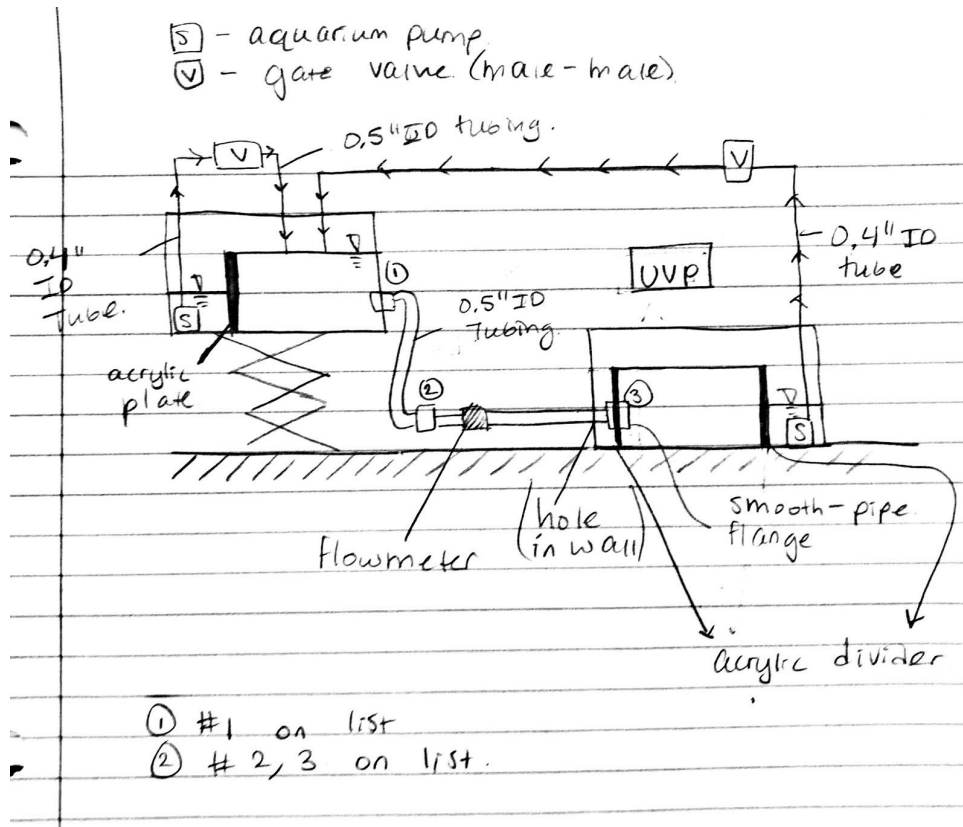 S - aquarium pump
V - gate valve (male-male)
0.5" ID tubing.
V
V
0.4"
ID
Tube.
0.4" ID
tube
①
UVP
0.5" ID
Tubing
S
acrylic
plate
②
③
S
flowmeter
(hole
in wall)
smooth-pipe
flange
acrylic divider
① #1 on list
② # 2, 3 on list.